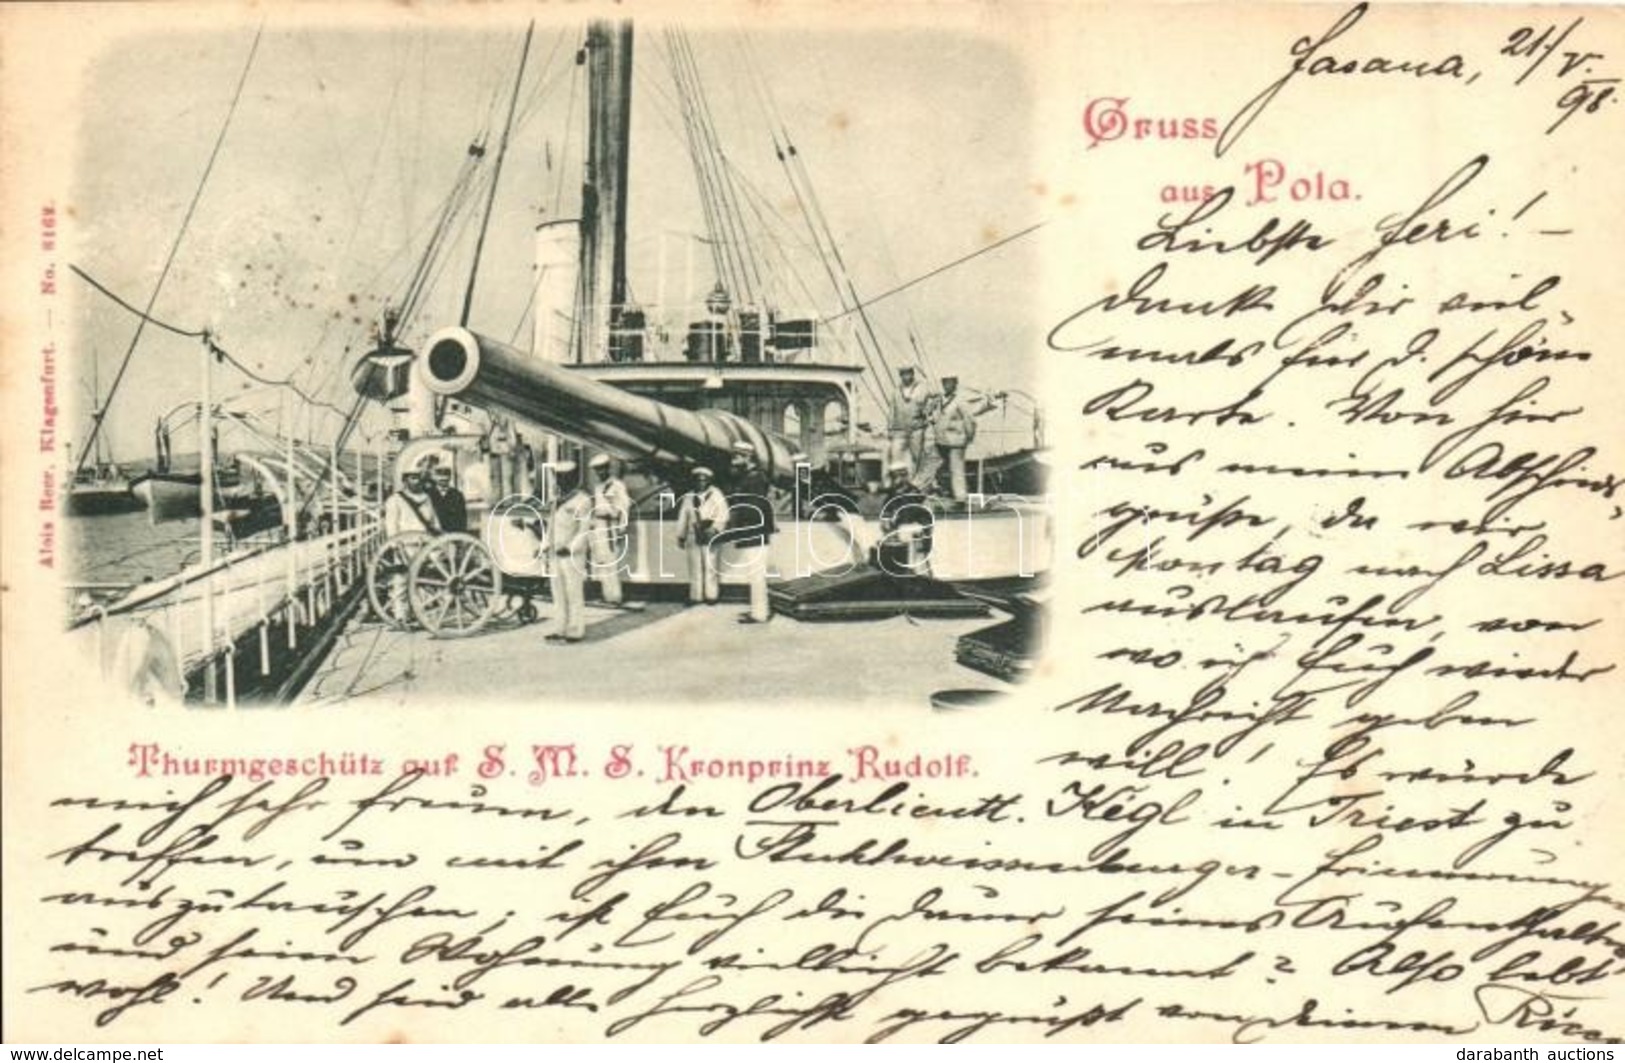 Fasana, 21./V. 98.
Gruss
aus Pola.
Liebste Feri! –
Danke Dir viel-
mals für d. schöne
Karte. Von hier
aus meine Abschieds-
grüße, da wir
Montag nach Lissa
auslaufen, von
wo ich Euch wieder
Nachricht geben
will! Es würde
mich sehr freuen, den Oberlieutt. Kégl in Triest zu
treffen, um mit ihm Stuhlweissenburger-Erinnerungen
auszutauschen; ist Euch die Dauer seines Aufenthaltes
und seine Wohnung vielleicht bekannt? Also lebt
wohl! Und seid alle herzlichst gegrüßt von Deinem
Thurmgeschütz auf S. M. S. Kronprinz Rudolf.
Alois Beer, Klagenfurt. — No. 816
darabanth
delcampe.net
darabanth auctions